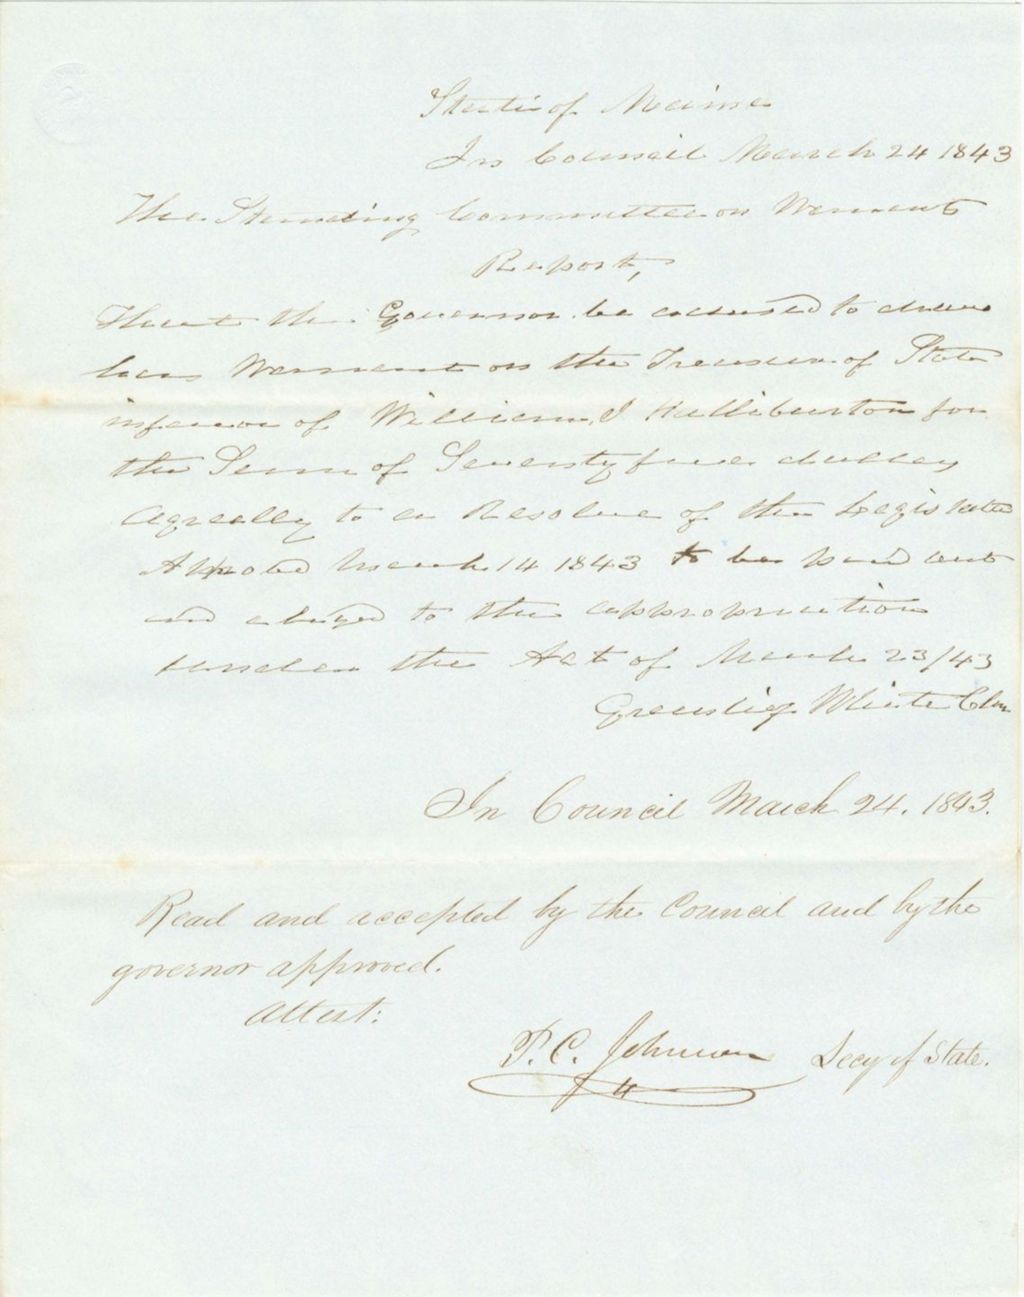 State of Maine
In Council March 24 1843
The Standing Committee on Warrants
Report,
That the Governor be advised to draw
his Warrant on the Treasurer of State
in favor of William J Halliburton for
the Sum of Seventy five dollars
Agreeally to a Resolve of the Legislature
March 14 1843 to be paid out
and charged to the appropriation
under the Act of March 23/43
Greenlief White Chm
In Council March 24. 1843.
Read and accepted by the Council and by the
governor approved.
Attest:
P. C. Johnson Secy of State.